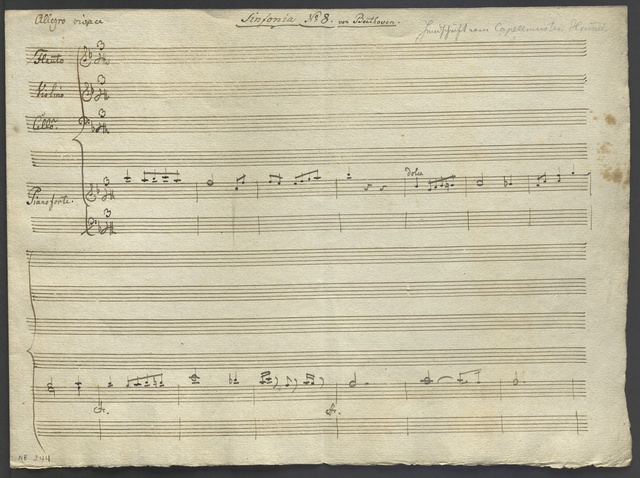 Allegro vivace
Sinfonia No 8. von Beethoven.
Handschrift von Capellmeister Hummel
Flauto
Violino
Cello.
Pianoforte.
dolce
NE 244